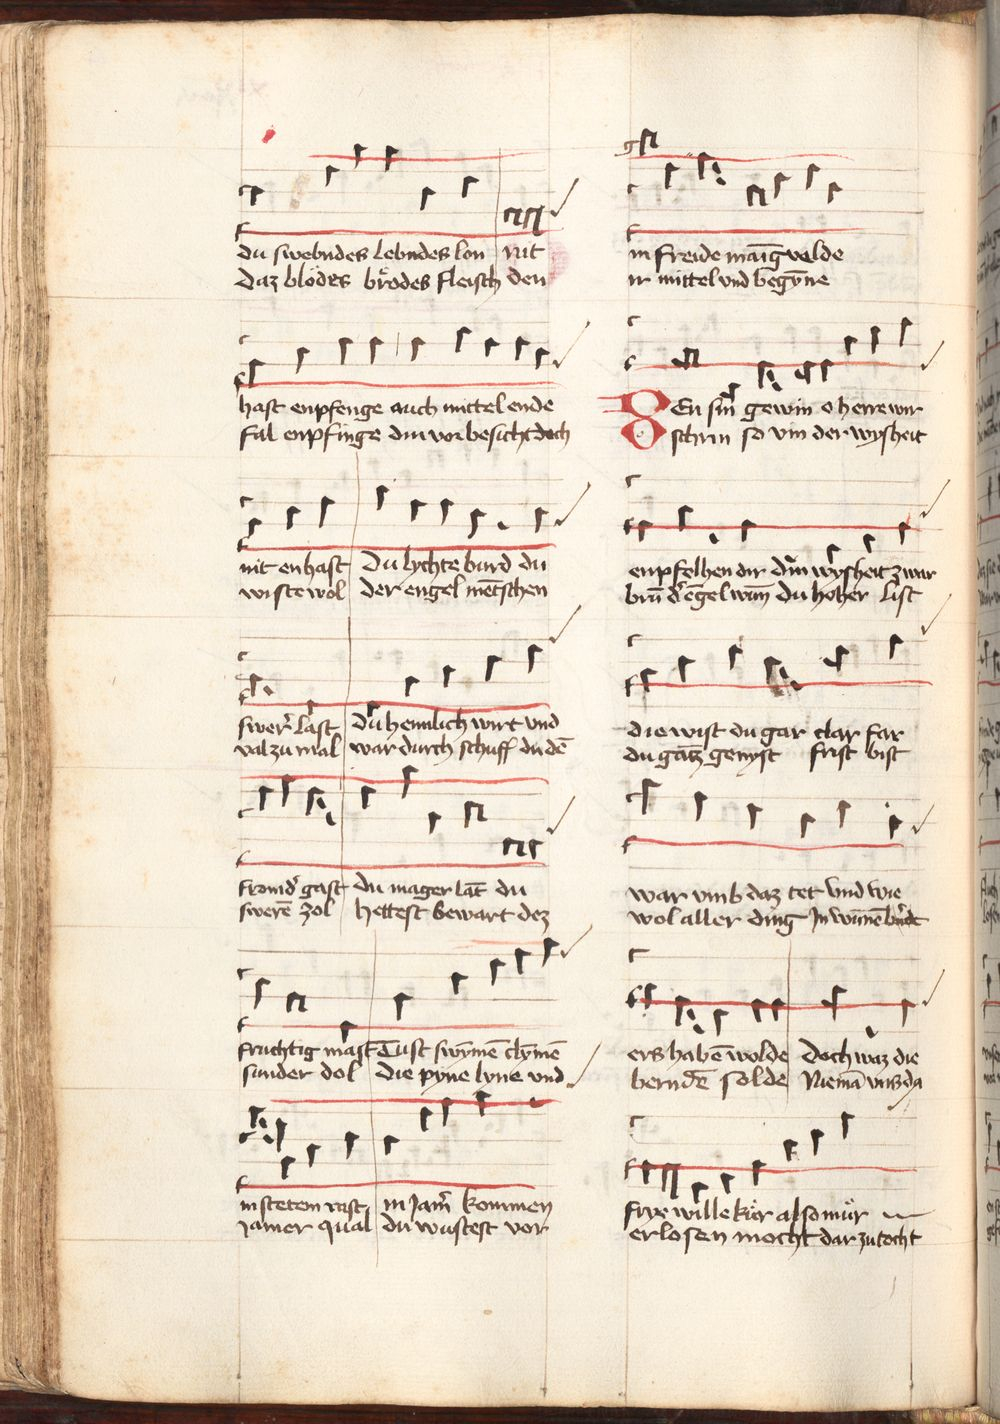 du swebndes lebndes lon nit
daz blödes brödes fleisch den
hast enpfenge auch mittel ende
fal enpfinge din vorbesicht doch
nit en hast Du lychte burd du
wiste wol der engel mētschen
swer last du heimlich wirt und
val zu mal war durch schuff du dē
fromd gast du mager lāt du
swerē zol hettest bewart dez
fruchtig mast Tust swȳmē clȳmē
sunder dol die pyne lyne und
in stetem rast in Jam kommen
iamer qual du wustest vor
in freude maīg valde
ir mittel und begȳne
En sin gewin o herre wir
schrin so vin der wysheit
enpfelhen dir din wysheit zwar
brū d' ēgel wūn du hoher list
die wist du gar clar far
du gātz genyst frist bist
war umb daz tet und wie
wol aller ding In wūnē
ers habē wolde Doch waz die
berndē solde Niemā uns da
frye wille kür also mür
erlosen mocht dar zu tocht